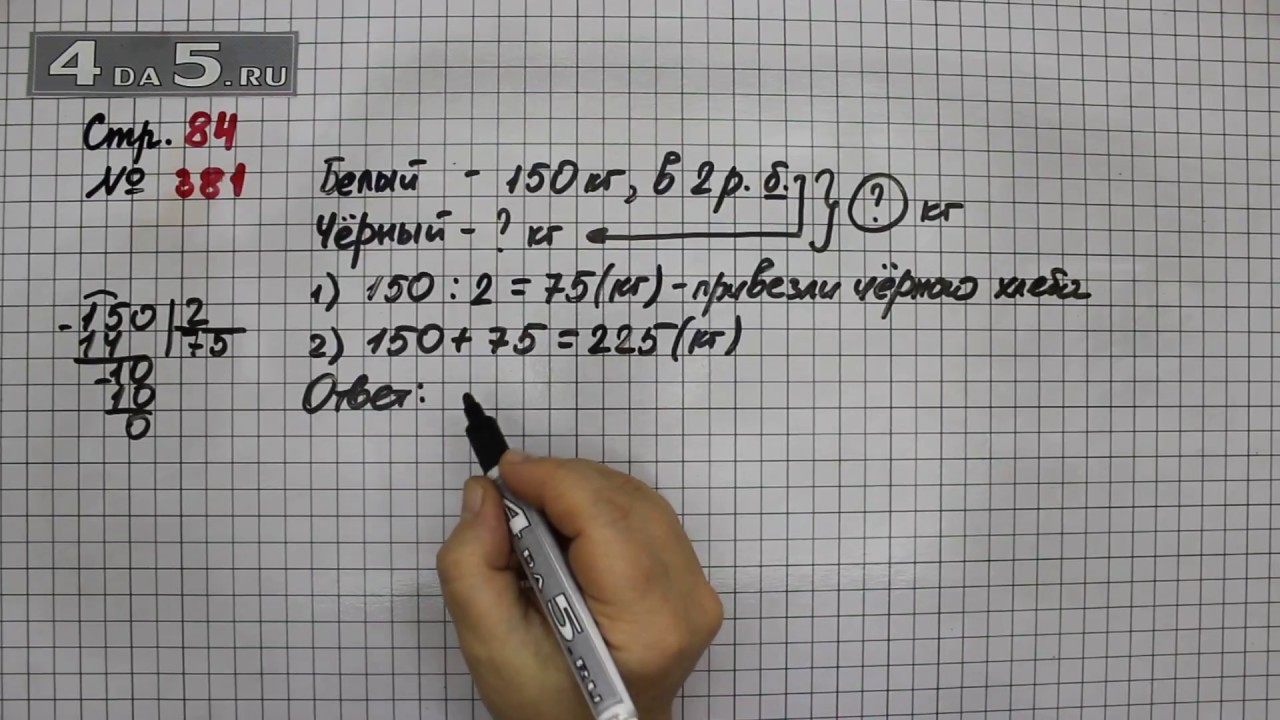 4 DA 5.RU
Стр. 84
№ 381
Белый - 150 кг, в 2 р. б. } ? кг
Чёрный - ? кг
1) 150 : 2 = 75 (кг) - привезли чёрного хлеба
2) 150 + 75 = 225 (кг)
Ответ:
- 150 | 2
14 | 75
- 10
10
0
4 DA 5.RU